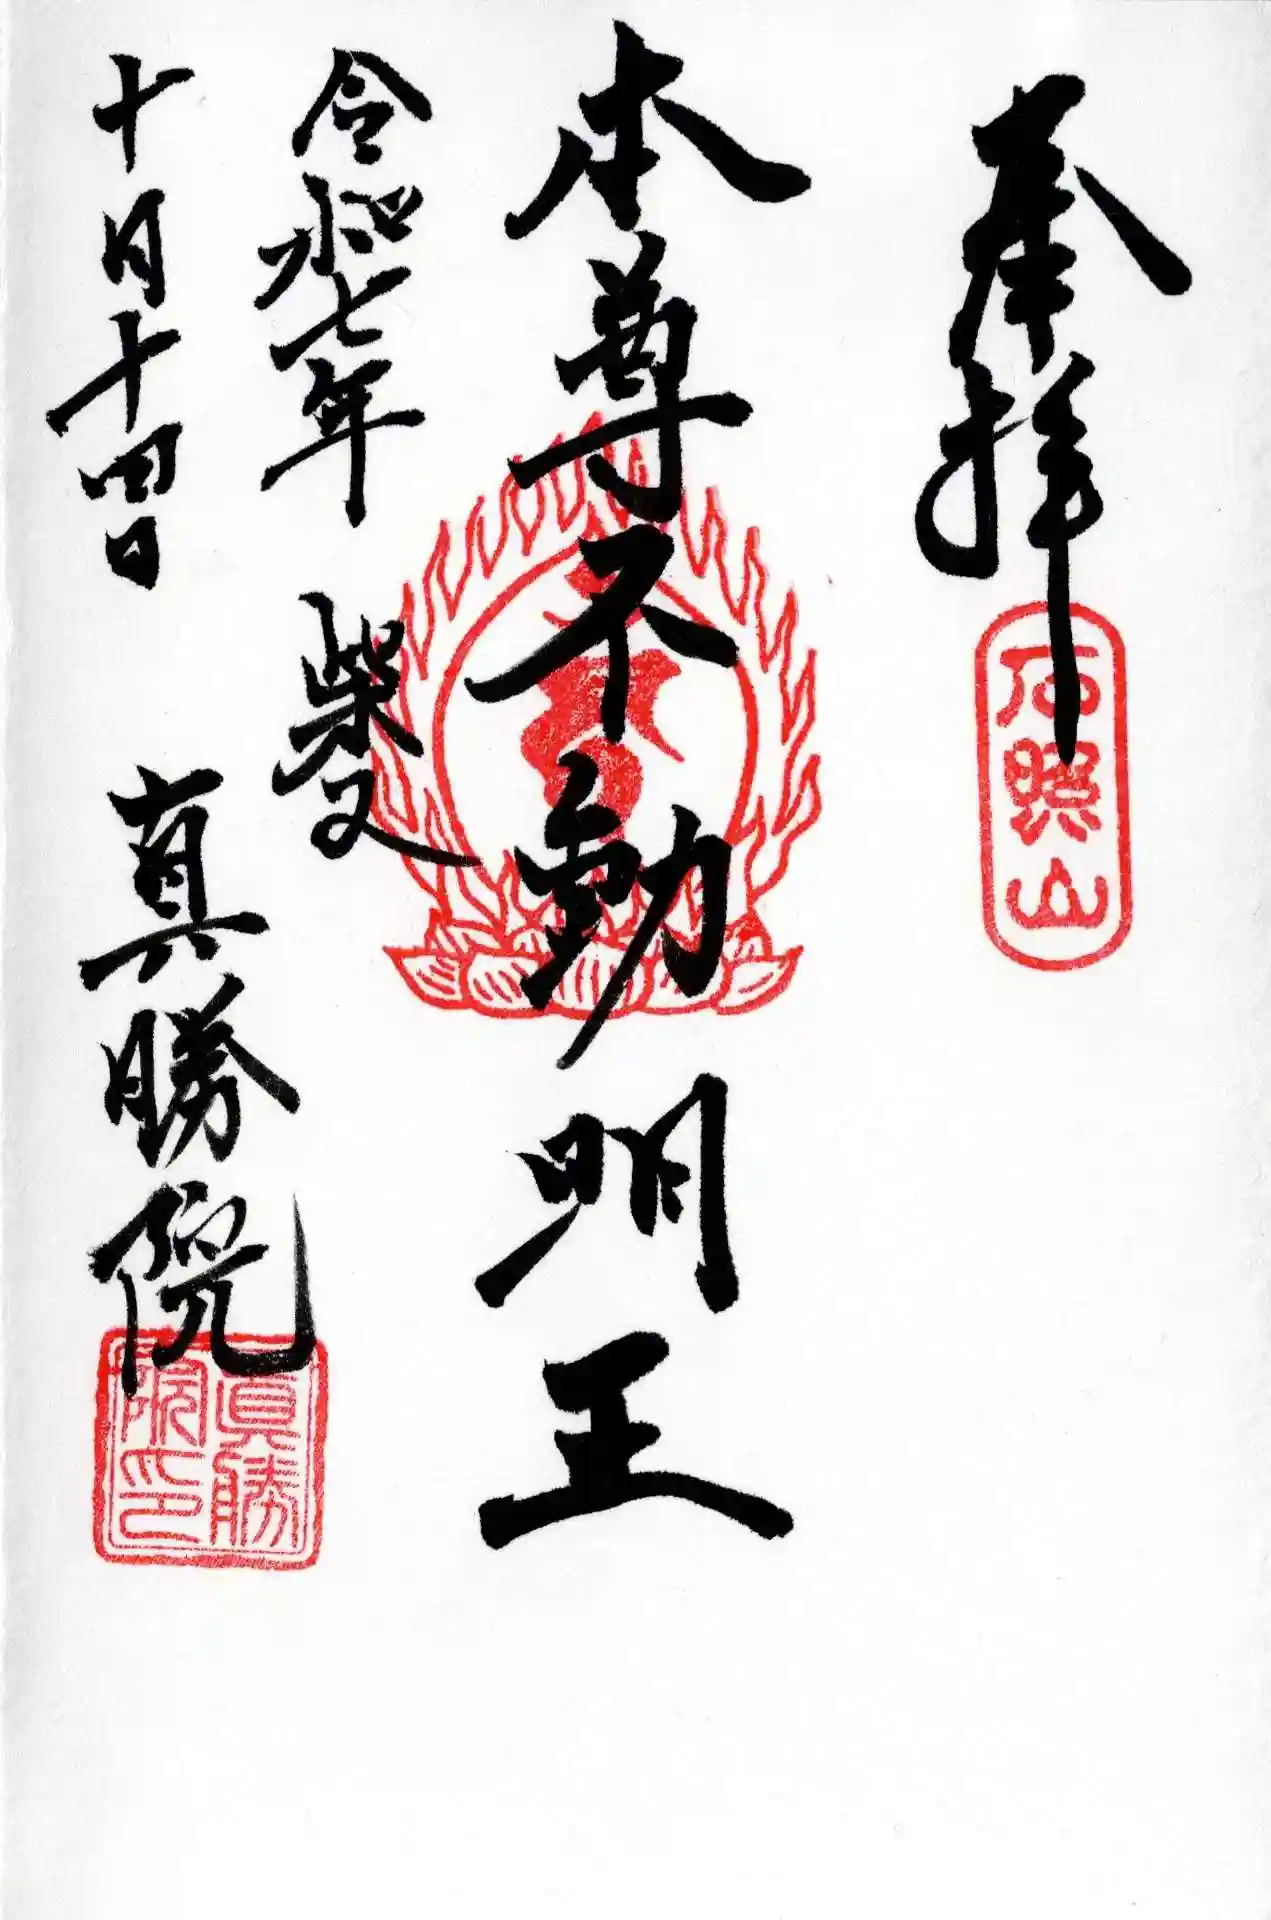 奉拝
石照山
本尊不動明王
令和七年
十月十四日
柴又
真勝院
眞勝
院印